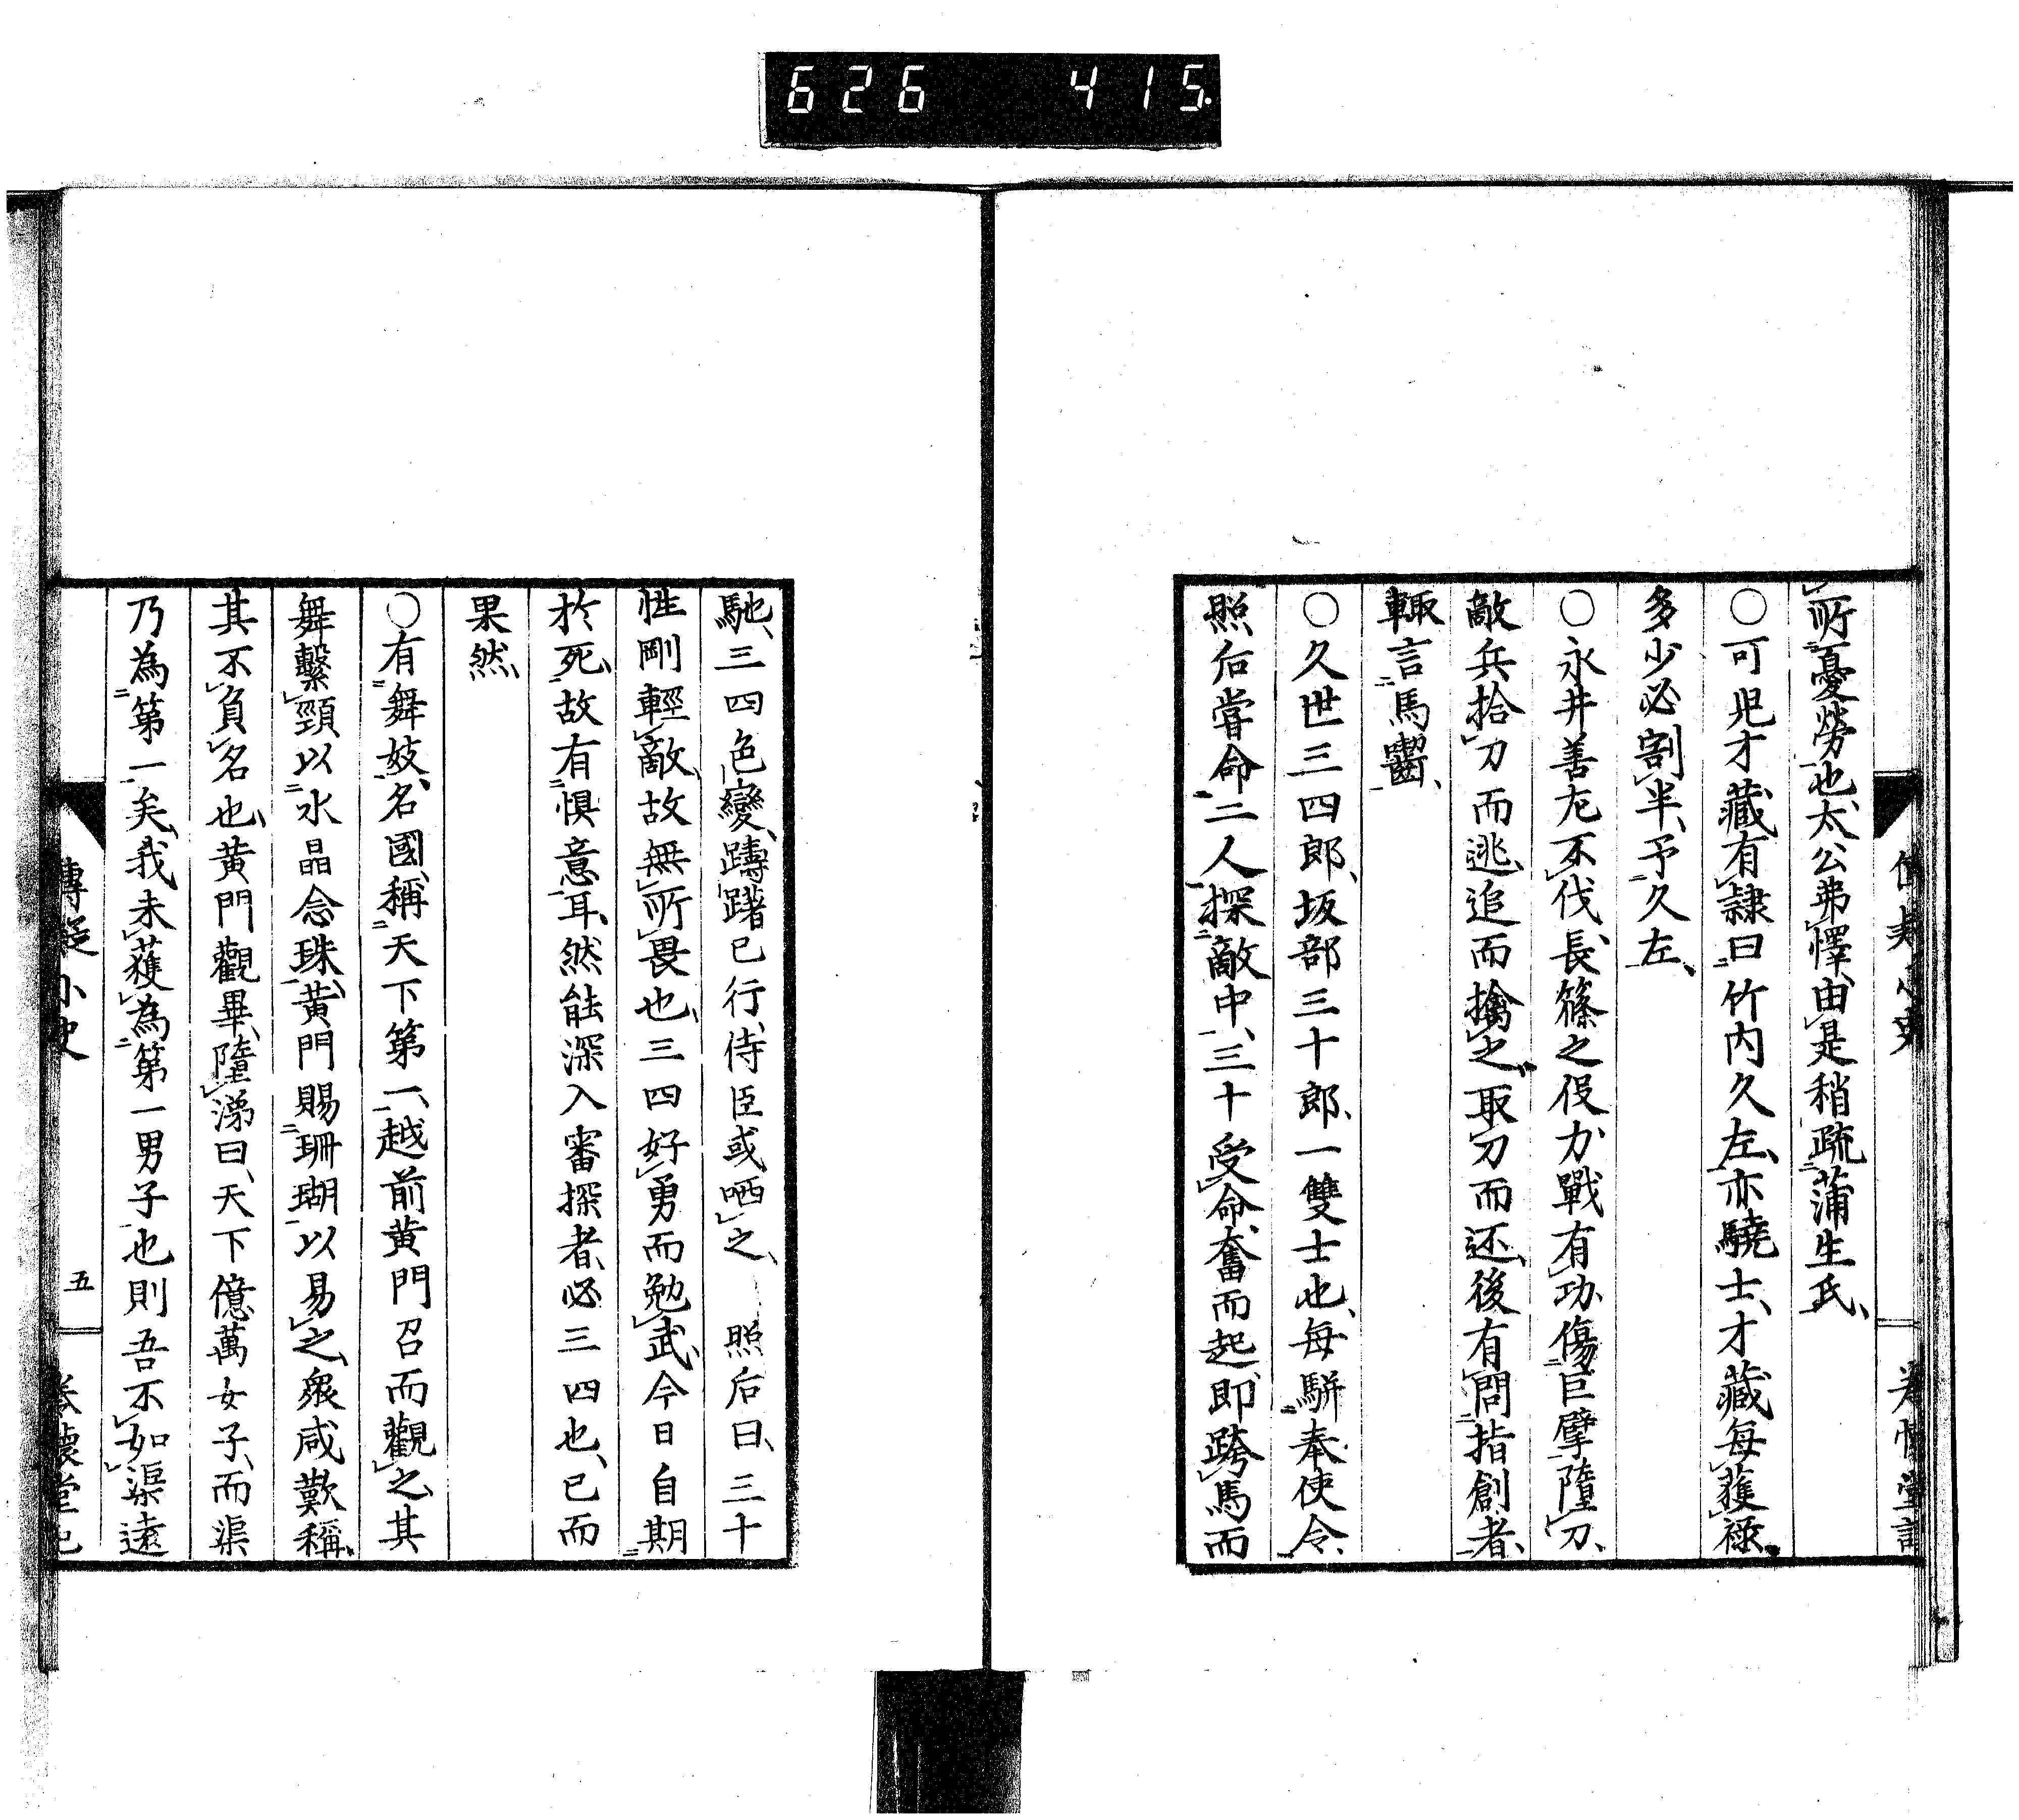 626 415.
所憂勞也、太公弗懌、由是稍疏蒲生氏、
○可兒才藏有隷曰竹内久左、亦驍士、才藏每獲祿、
多少必割半、予久左、
○永井善左不伐、長篠之役力戰有功、傷巨擘墮刀、
敵兵拾刀而逃、追而擒之、取刀而还、後有問指創者、
輙言馬齧、
○久世三四郎、坂部三十郎、一雙士也、每駢奉使令、
照后嘗命二人探敵中、三十受命、奮而起、即跨馬而
馳、三四色變、躊躇已行、侍臣或哂之、 照后曰、三十
性剛輕敵、故無所畏也、三四好勇而勉武、今日自期
於死、故有惧意耳、然能深入審探者、必三四也、已而
果然、
○有舞妓、名國、稱天下第一、越前黄門召而觀之、其
舞繫頸以水晶念珠、黄門賜珊瑚以易之、衆咸歎稱、
其不負名也、黄門觀畢、墮涕曰、天下億萬女子、而渠
乃為第一矣、我未獲為第一男子也則吾不如渠遠
五